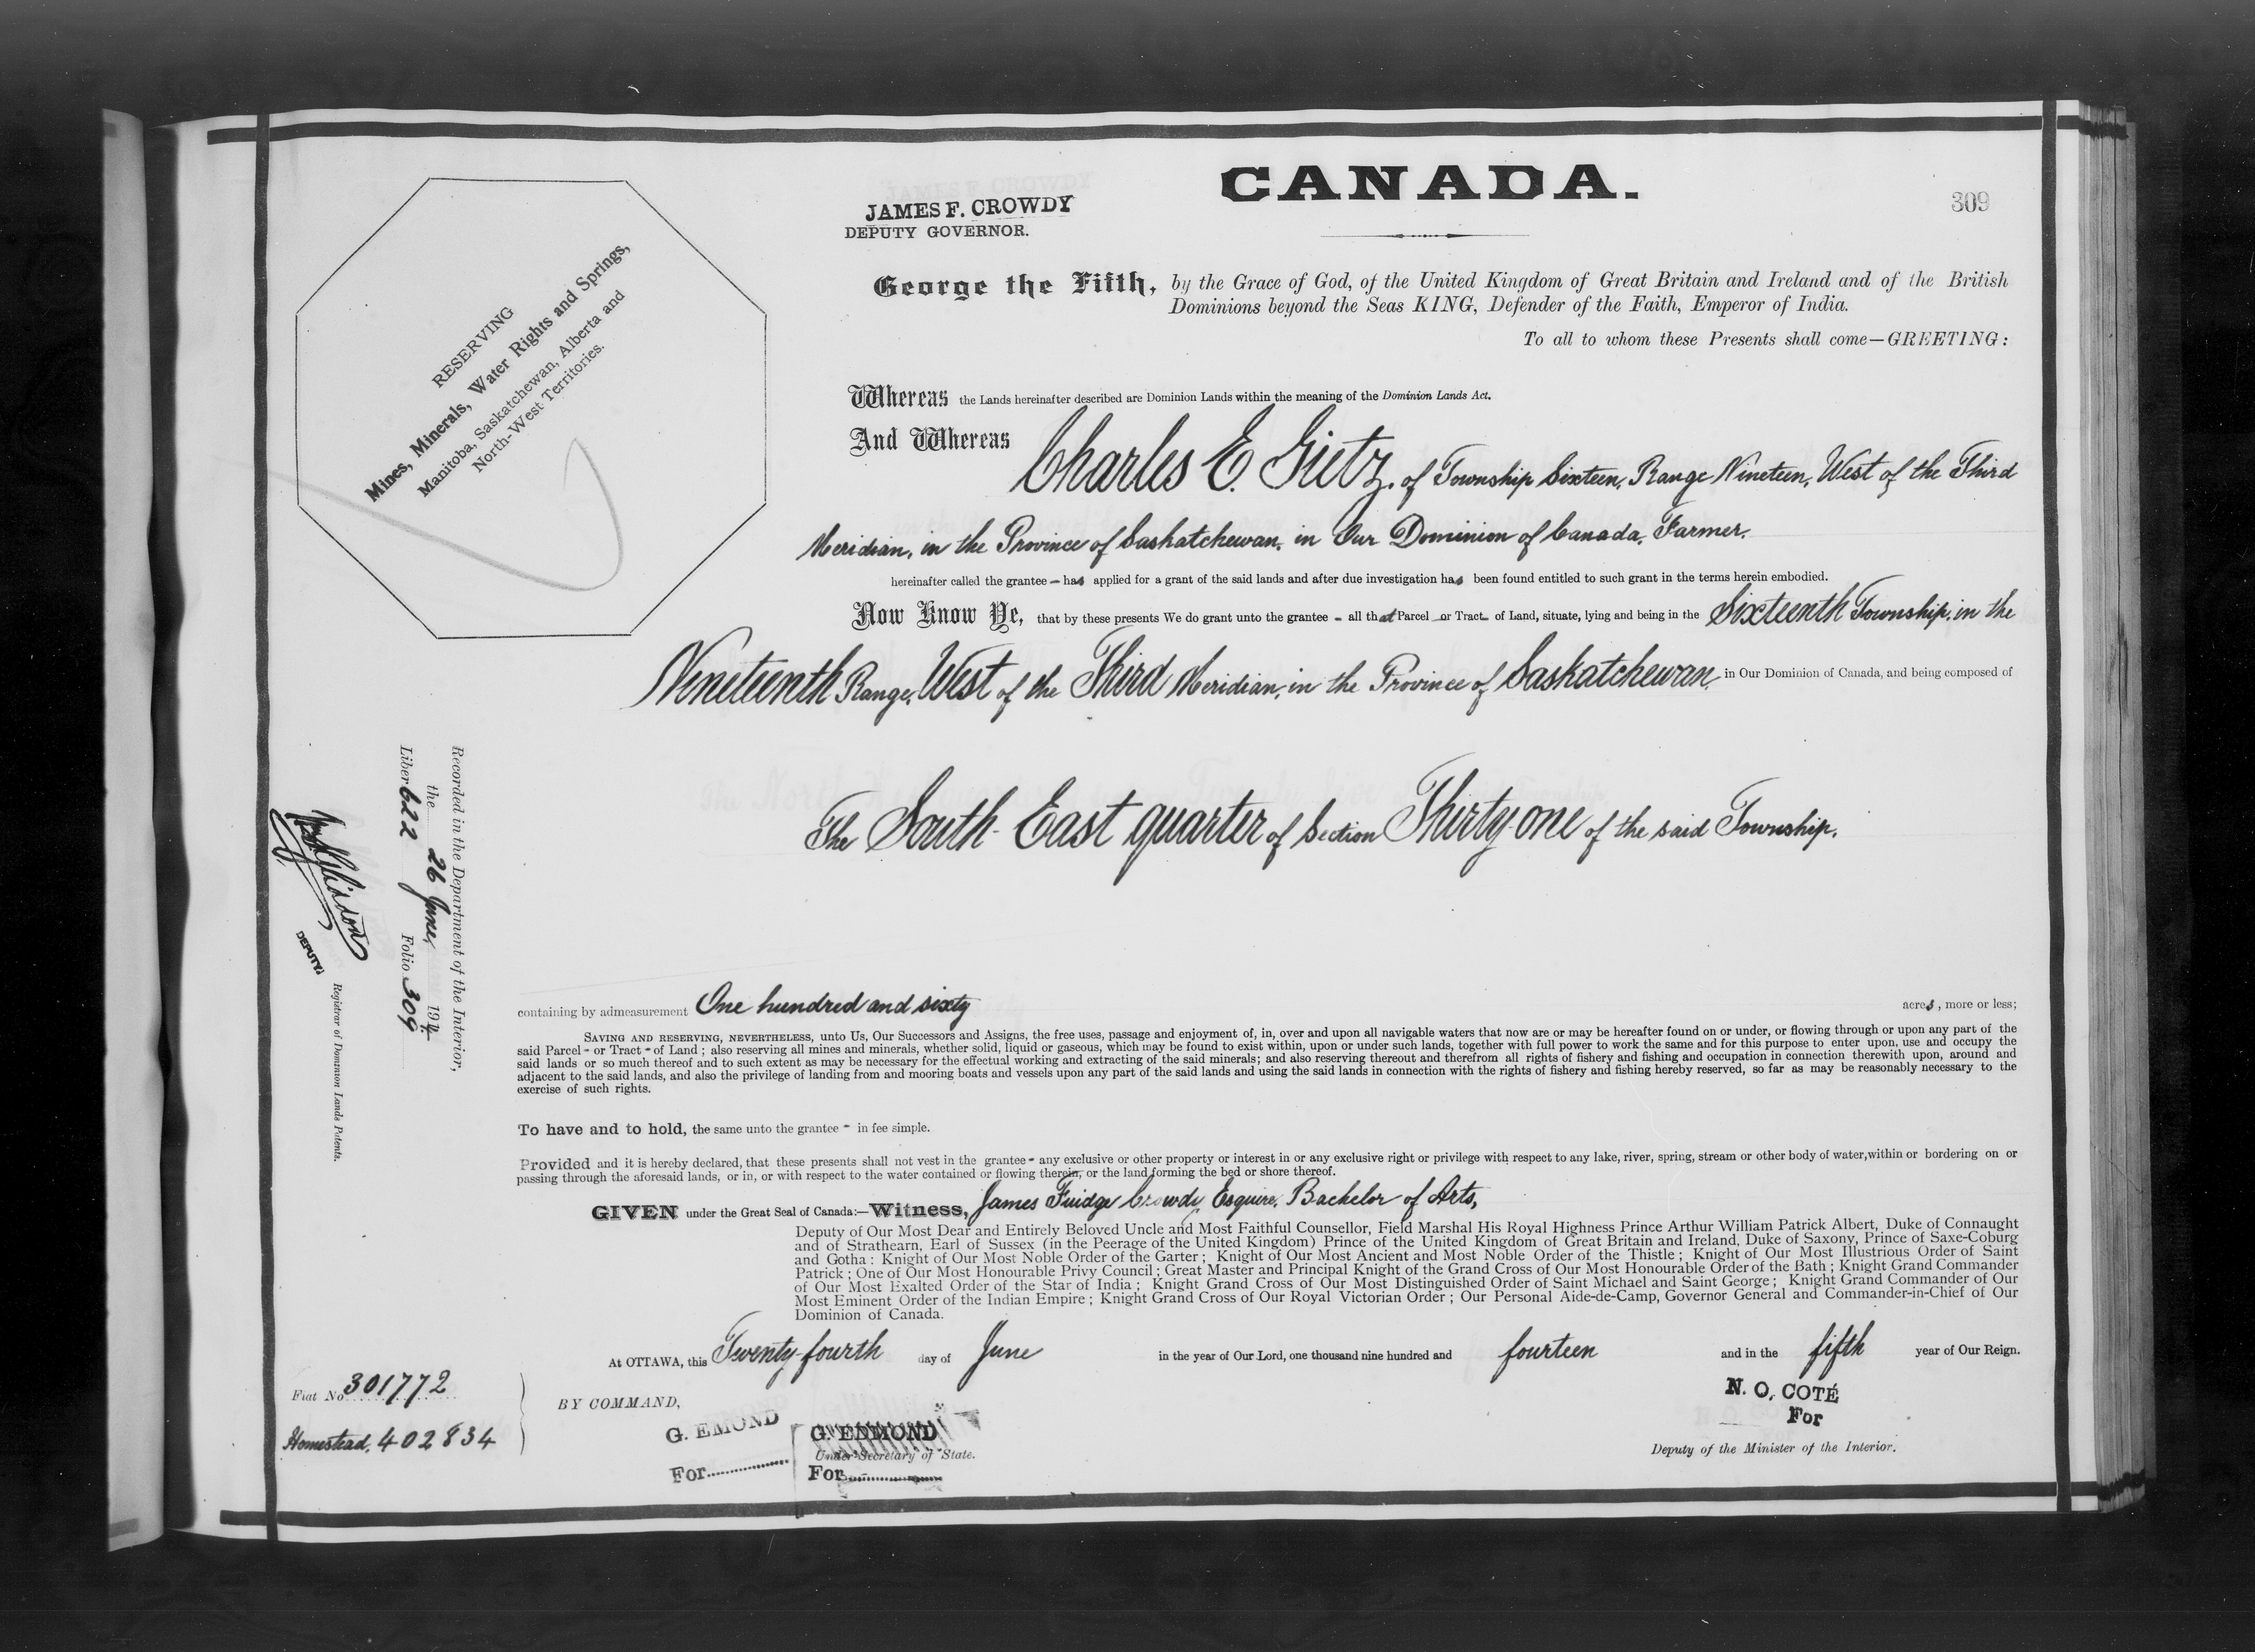 CANADA.
309
JAMES F. CROWDY
DEPUTY GOVERNOR.
RESERVING
Mines, Minerals, Water Rights and Springs,
Manitoba, Saskatchewan, Alberta and
North-West Territories.
George the Fifth, by the Grace of God, of the United Kingdom of Great Britain and Ireland and of the British
Dominions beyond the Seas KING, Defender of the Faith, Emperor of India.
To all to whom these Presents shall come—GREETING:
Whereas the Lands hereinafter described are Dominion Lands within the meaning of the Dominion Lands Act.
And Whereas Charles E. Gietz, of Township Sixteen, Range Nineteen, West of the Third
Meridian, in the Province of Saskatchewan, in Our Dominion of Canada, Farmer.
hereinafter called the grantee - has applied for a grant of the said lands and after due investigation has been found entitled to such grant in the terms herein embodied.
Now Know Ye, that by these presents We do grant unto the grantee - all that Parcel - or Tract - of Land, situate, lying and being in the Sixteenth Township, in the
Nineteenth Range, West of the Third Meridian, in the Province of Saskatchewan, in Our Dominion of Canada, and being composed of
The South-East quarter of Section Thirty-one of the said Township.
Recorded in the Department of the Interior,
the 26 June, 1914
Liber 622 Folio 309
DEPUTY
Registrar of Dominion Lands Patents.
containing by admeasurement One hundred and sixty acres, more or less;
SAVING AND RESERVING, NEVERTHELESS, unto Us, Our Successors and Assigns, the free uses, passage and enjoyment of, in, over and upon all navigable waters that now are or may be hereafter found on or under, or flowing through or upon any part of the
said Parcel - or Tract - of Land; also reserving all mines and minerals, whether solid, liquid or gaseous, which may be found to exist within, upon or under such lands, together with full power to work the same and for this purpose to enter upon, use and occupy the
said lands or so much thereof and to such extent as may be necessary for the effectual working and extracting of the said minerals; and also reserving thereout and therefrom all rights of fishery and fishing and occupation in connection therewith upon, around and
adjacent to the said lands, and also the privilege of landing from and mooring boats and vessels upon any part of the said lands and using the said lands in connection with the rights of fishery and fishing hereby reserved, so far as may be reasonably necessary to the
exercise of such rights.
To have and to hold, the same unto the grantee - in fee simple.
Provided and it is hereby declared, that these presents shall not vest in the grantee - any exclusive or other property or interest in or any exclusive right or privilege with respect to any lake, river, spring, stream or other body of water, within or bordering on or
passing through the aforesaid lands, or in, or with respect to the water contained or flowing therein, or the land forming the bed or shore thereof.
GIVEN under the Great Seal of Canada:—Witness, James Fuidge Crowdy, Esquire, Bachelor of Arts,
Deputy of Our Most Dear and Entirely Beloved Uncle and Most Faithful Counsellor, Field Marshal His Royal Highness Prince Arthur William Patrick Albert, Duke of Connaught
and of Strathearn, Earl of Sussex (in the Peerage of the United Kingdom) Prince of the United Kingdom of Great Britain and Ireland, Duke of Saxony, Prince of Saxe-Coburg
and Gotha: Knight of Our Most Noble Order of the Garter; Knight of Our Most Ancient and Most Noble Order of the Thistle; Knight of Our Most Illustrious Order of Saint
Patrick; One of Our Most Honourable Privy Council; Great Master and Principal Knight of the Grand Cross of Our Most Honourable Order of the Bath; Knight Grand Commander
of Our Most Exalted Order of the Star of India; Knight Grand Cross of Our Most Distinguished Order of Saint Michael and Saint George; Knight Grand Commander of Our
Most Eminent Order of the Indian Empire; Knight Grand Cross of Our Royal Victorian Order; Our Personal Aide-de-Camp, Governor General and Commander-in-Chief of Our
Dominion of Canada.
At OTTAWA, this Twenty-fourth day of June in the year of Our Lord, one thousand nine hundred and fourteen and in the fifth year of Our Reign.
Fiat No 301772
Homestead, 402834
BY COMMAND,
G. EMOND
For
G. EDMOND
Under-Secretary of State.
For
N. O. COTÉ
For
Deputy of the Minister of the Interior.